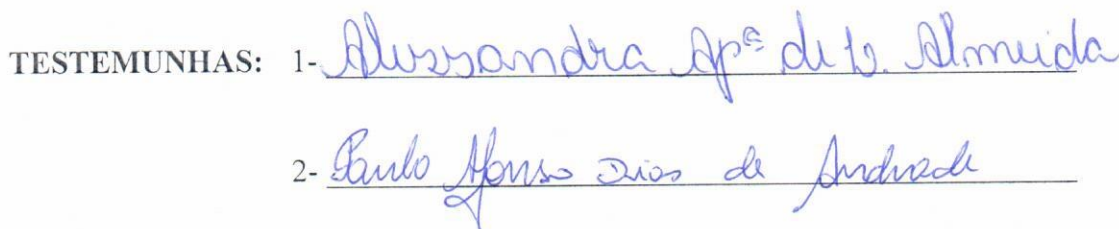 TESTEMUNHAS: 1- Alessandra Apª de S. Almeida
2- Paulo Afonso Dias de Andrade